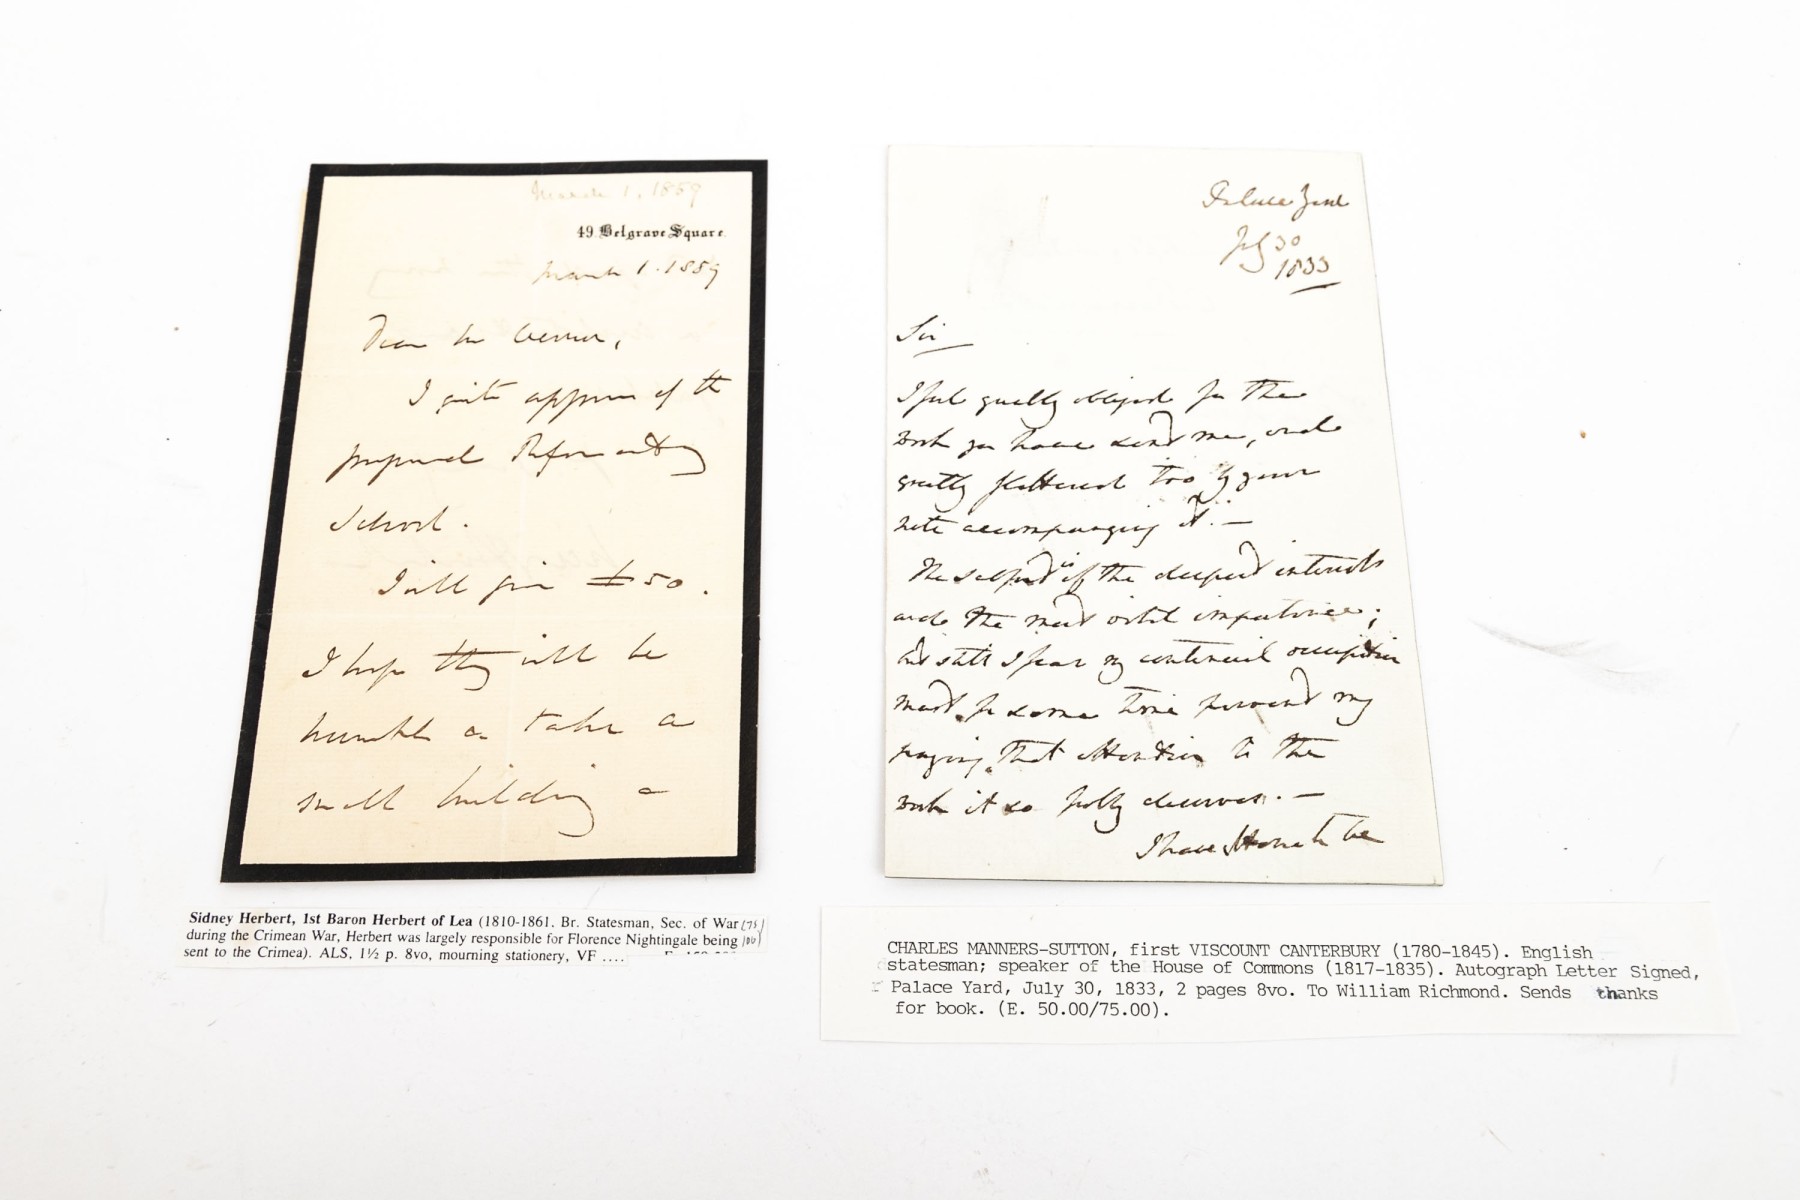 March 1. 1859
49. Belgrave Square.
March 1. 1859
Dear Mr
I quite approve of the
proposed Reformatory
School.
I will give £50.
I hope they will be
humble & take a
small building &
Sidney Herbert, 1st Baron Herbert of Lea (1810-1861. Br. Statesman, Sec. of War (75/
during the Crimean War, Herbert was largely responsible for Florence Nightingale being 100)
sent to the Crimea). ALS, 1½ p. 8vo, mourning stationery, VF ....
Palace Yard
July 30
1833
Sir
I feel greatly obliged for the
work you have send me, and
greatly flattered too by your
note accompanying it. —
The subject is of the deepest interest
and the most vital importance;
but still I fear my continual occupation
must for some time prevent my
paying that attention to the
work it so fully deserves. —
I have the Honor to be
CHARLES MANNERS-SUTTON, first VISCOUNT CANTERBURY (1780-1845). English
statesman; speaker of the House of Commons (1817-1835). Autograph Letter Signed,
Palace Yard, July 30, 1833, 2 pages 8vo. To William Richmond. Sends thanks
for book. (E. 50.00/75.00).